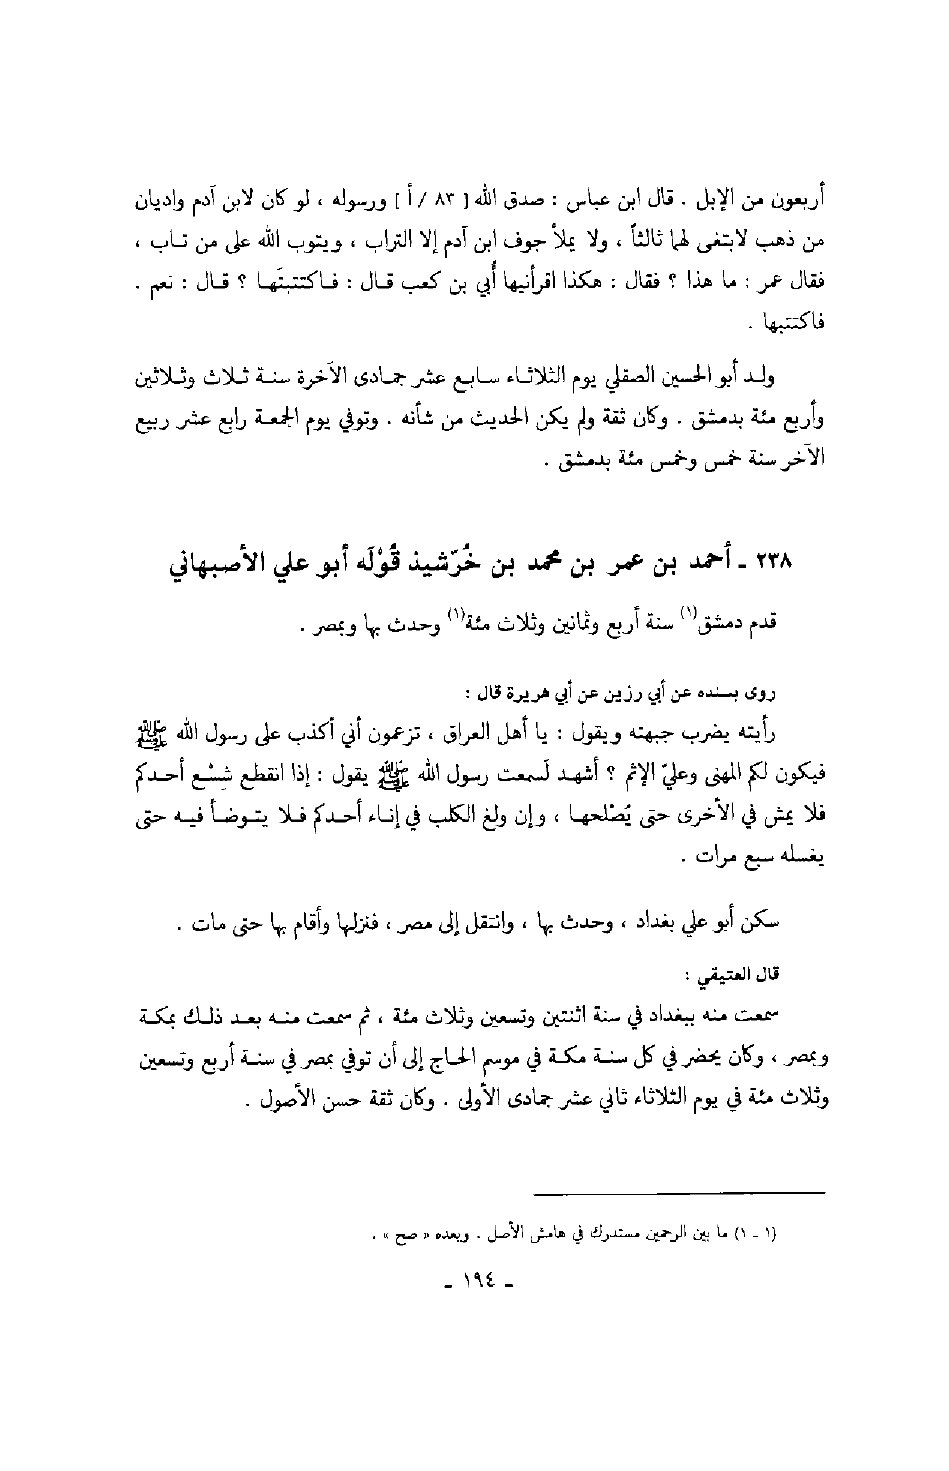 أربعون من الإبل . قال ابن عباس : صدق الله [ ٨٣ / أ ] ورسوله ، لو كان لابن آدم واديان
من ذهب لابتغى لهما ثالثاً ، ولا يملأ جوف ابن آدم إلا التراب ، ويتوب الله على من تاب ،
فقال عمر : ما هذا ؟ فقال : هكذا اقرأنيها أُبي بن كعب قال : فاكتتبتَها ؟ قال : نعم .
فاكتتبها .
ولد أبو الحسين الصقلي يوم الثلاثاء سابع عشر جمادى الآخرة سنة ثلاث وثلاثين
وأربع مئة بدمشق . وكان ثقة ولم يكن الحديث من شأنه . وتوفي يوم الجمعة رابع عشر ربيع
الآخر سنة خمس وخمس مئة بدمشق .
٢٣٨ - أحمد بن عمر بن محمد بن خُرّشيذ قُوْلَه أبو علي الأصبهاني
قدم دمشق(١) سنة أربع وثمانين وثلاث مئة(١) وحدث بها وبمصر .
روى بسنده عن أبي رزين عن أبي هريرة قال :
رأيته يضرب جبهته ويقول : يا أهل العراق ، تزعمون أني أكذب على رسول الله ﷺ
فيكون لكم المهنى وعليّ الإثم ؟ أشهد لَسمعت رسول الله ﷺ يقول : إذا انقطع شِسْع أحدكم
فلا يمش في الأخرى حتى يُصْلحها ، وإن ولغ الكلب في إناء أحدكم فلا يتوضأ فيه حتى
يغسله سبع مرات .
سكن أبو علي بغداد ، وحدث بها ، وانتقل إلى مصر ، فنزلها وأقام بها حتى مات .
قال العتيقي :
سمعت منه ببغداد في سنة اثنتين وتسعين وثلاث مئة ، ثم سمعت منه بعد ذلك بمكة
وبمصر ، وكان يحضر في كل سنة مكة في موسم الحاج إلى أن توفي بمصر في سنة أربع وتسعين
وثلاث مئة في يوم الثلاثاء ثاني عشر جمادى الأولى . وكان ثقة حسن الأصول .
(١ - ١) ما بين الرحمين مستدرك في هامش الأصل . وبعده « صح » .
- ١٩٤ -